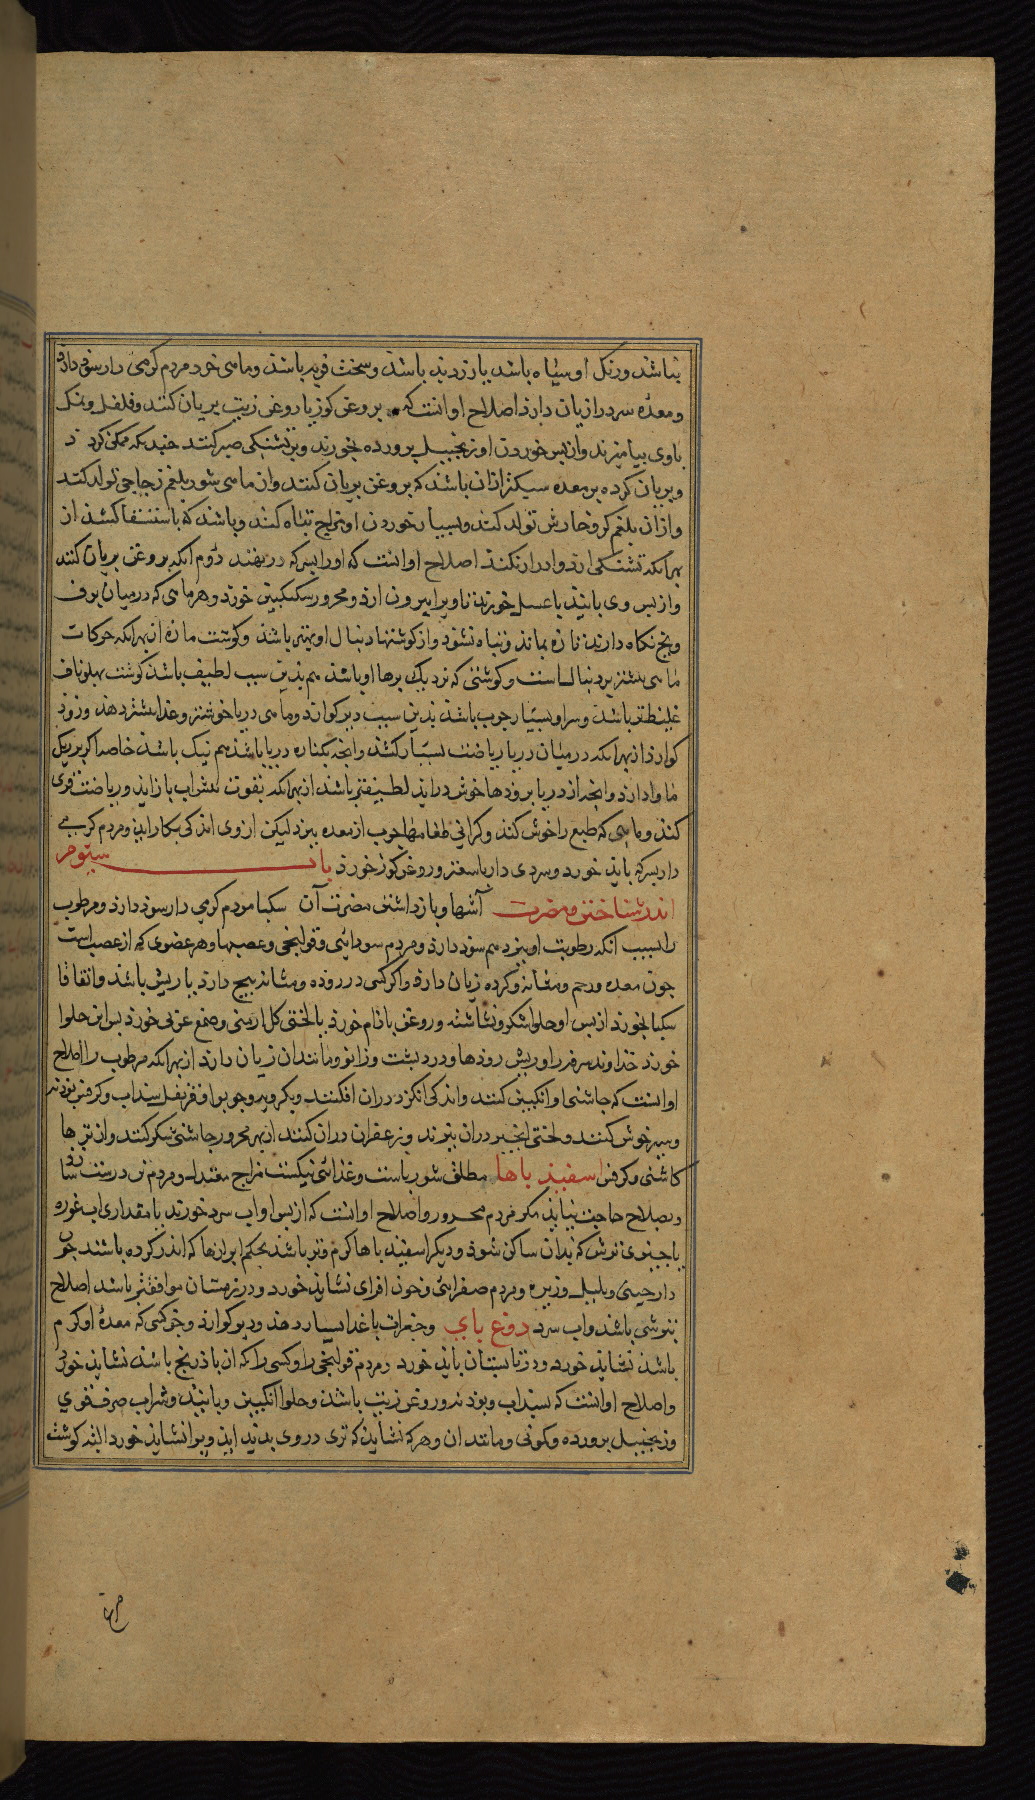 نباشد ورنک او سیاه باشد یا زرد نباشد وسخت فربه باشد وماهی خرد مردم کرمی دار سود دارد
ومعده سرد را زیان دارد اصلاح او انست که بروغن کوز یا روغن زیت بریان کنند وفلفل ونمک
باوی بیامیزند وازپس خوردن او زنجبیل پرورده بخورند وبرتشنکی صبر کنند چندانکه ممکن کردد
وبریان کرده بر معده سبکتر ازان باشد که بروغن بریان کنند وان ماهی شور بلغم زجاجی تولد کند
وازان بلغم کر وخارش تولد کند وبسیار خوردن او مزاج تباه کند وباشد که باستسقا کشد از
بهر انکه تشنکی ارد وادرار نکند اصلاح او انست که او را بسرکه در نهند دوم انکه بروغن بریان کنند
وازپس وی بابنید یا عسل خورند تا ویرا بیرون ارد ومحرور سکنکبین خورد وهر ماهی که درمیان برف
ویخ نکاه دارند تازه بماند وتباه نشود وازکوشتها دنبال او بهتر باشد وکوشت مازه ازبهر انکه حرکات
ماهی بیشتر بر دنبال است وکوشتی که نزدیک پرها او باشد هم بدین سبب لطیف باشد کوشت پهلو وناف
غلیظتر باشد وسر او بسیار چرب باشد بدین سبب دیر کوارد وماهی دریا خوشتر وغذا بیشتر دهد وزود
کوارد ازبهر انکه درمیان دریا ریاضت بسیار کند وانچه بکناره دریا باشد هم نیک باشد خاصه اکر بریک
ماوا دارد وانچه از دریا برودها خوش دراید لطیفتر باشد ازبهر انکه بقوت بشراب بازاید وریاضت قوی
کند وماهی که طبع را خوش کند وکرانی طعامها چرب ازمعده ببرد لیکن ازوی اندکی بکار اید ومردم کرمی
دار بسرکه باید خورد وسردی دار باسعتر وروغن کوز خورد باب سیوم
اندر شناختن مضرت آشها وبازداشتن مضرت آن سکبا مردم کرمی دار سود دارد ومرطوب
را بسبب انکه رطوبت او ببرد هم سود دارد ومردم سودایی وقولنجی وعصبها وهر عضوی که ازعصب است
چون معده ورحم ومثانه وکرده زیان دارد واکر کسی در روده ومثانه پیچ دارد یا ریش باشد واتفاقا
سکبا بخورد ازپس او حلوا شکر ونشاسته وروغن بادام خورد با لختی کل ارمنی وصمغ عربی خورد پس این حلوا
خورد خداوند سرفه را وریش رودها ودرد پشت وزانو ومانند ان زیان دارد ازبهر انکه مرطوب را اصلاح
او انست که چاشنی او انکبین کنند واندکی انکزد دران افکنند وبکرویه وچوبها وقرنفل وسداب وکرفس وبودنه
وسیر خوش کنند ولختی انجیر دران بپزند وزعفران دران کنند ازبهر محرور چاشنی شکر کنند وان تره ها
کاشنی وکرفس اسفید باها مطلق شورباست وغذائی نیکست مزاج معتدل ومردم تن درست را
وبصلاح حاجت نیاید مکر مردم محرور واصلاح او انست که ازپس او اب سرد خورند یا مقداری اب غوره
یا چیزی ترش که بدان ساکن شود ودیکر اسفید باها کرم وتر باشد بحکم ابزارها که اندر کرده باشند چون
دارچینی وپلپل وزیره ومردم صفرائی وخون افزای نشاید خورد ودر زمستان موافقتر باشد اصلاح
بترشی باشد واب سرد دوغ بای وجغرات باغذا بسیار دهد ودیر کوارد وجز کسی که معدۀ او کرم
باشد نشاید خورد ودر تابستان باید خورد ومردم قولنجی را وکسی را که ان باد رنج باشد نشاید خورد
واصلاح او انست که بسداب وبودنه وروغن زیت باشد وحلوا انکبین وبابنید وشراب صرف قوی
وزنجبیل پرورده وکمونی ومانند ان وهرکه نشاید که تری دروی بدید اید ویرا نشاید خورد البته کوشت